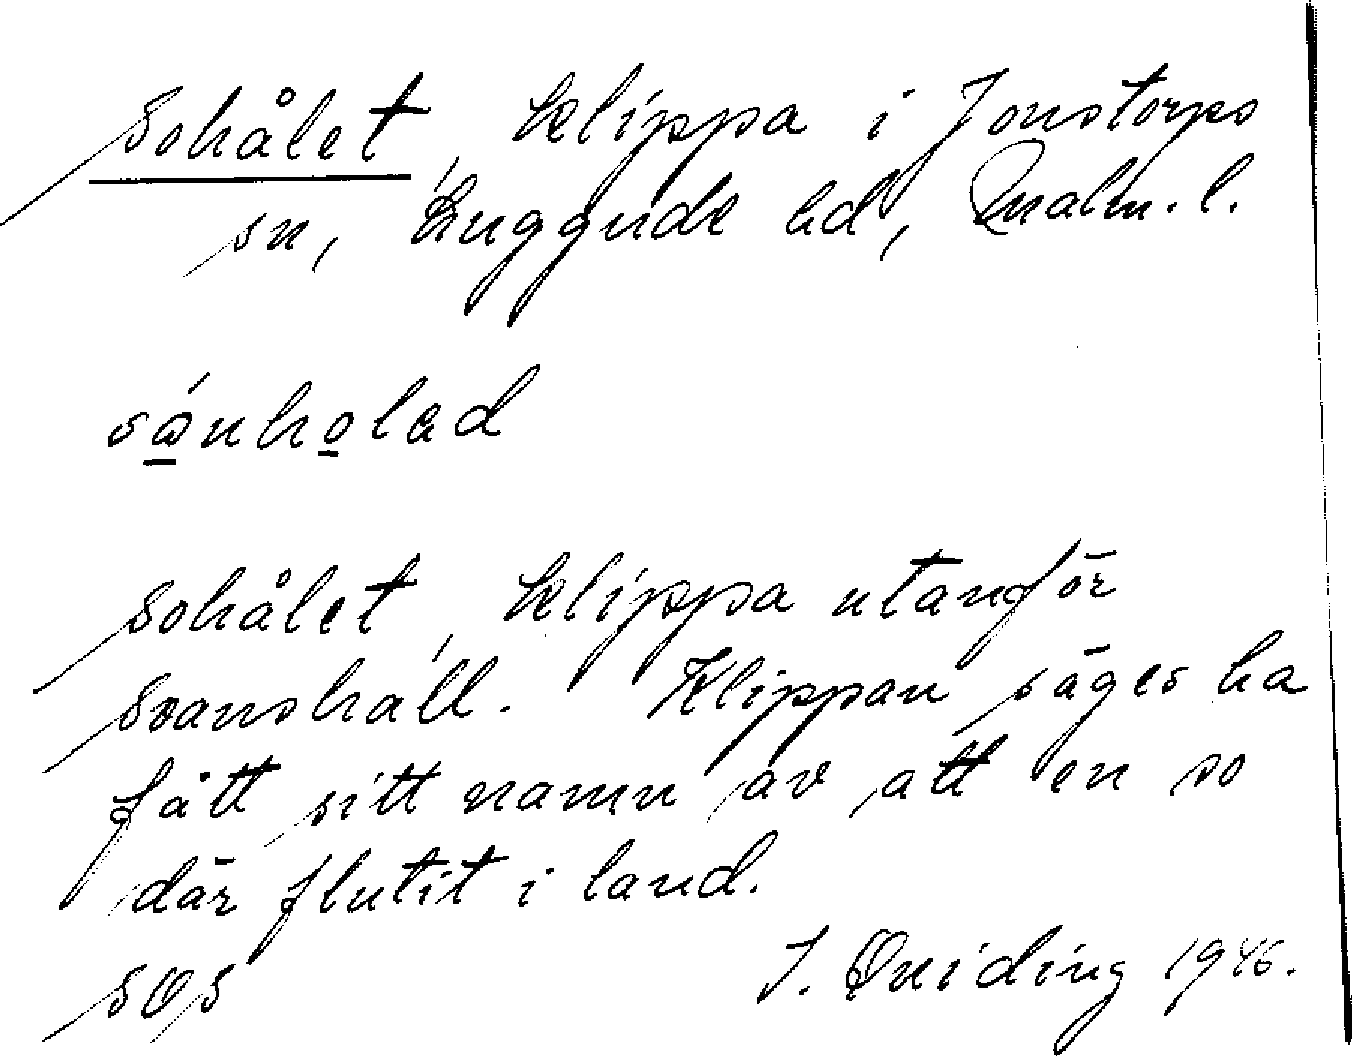 Sohålet, klippa i Jonstorps
sn, Luggude hd, Malm. l.
Sohålet, klippa utanför
Svanshall. Klippan säges ha
fått sitt namn av att en so
där flutit i land.
SOS J. Qviding 1946.